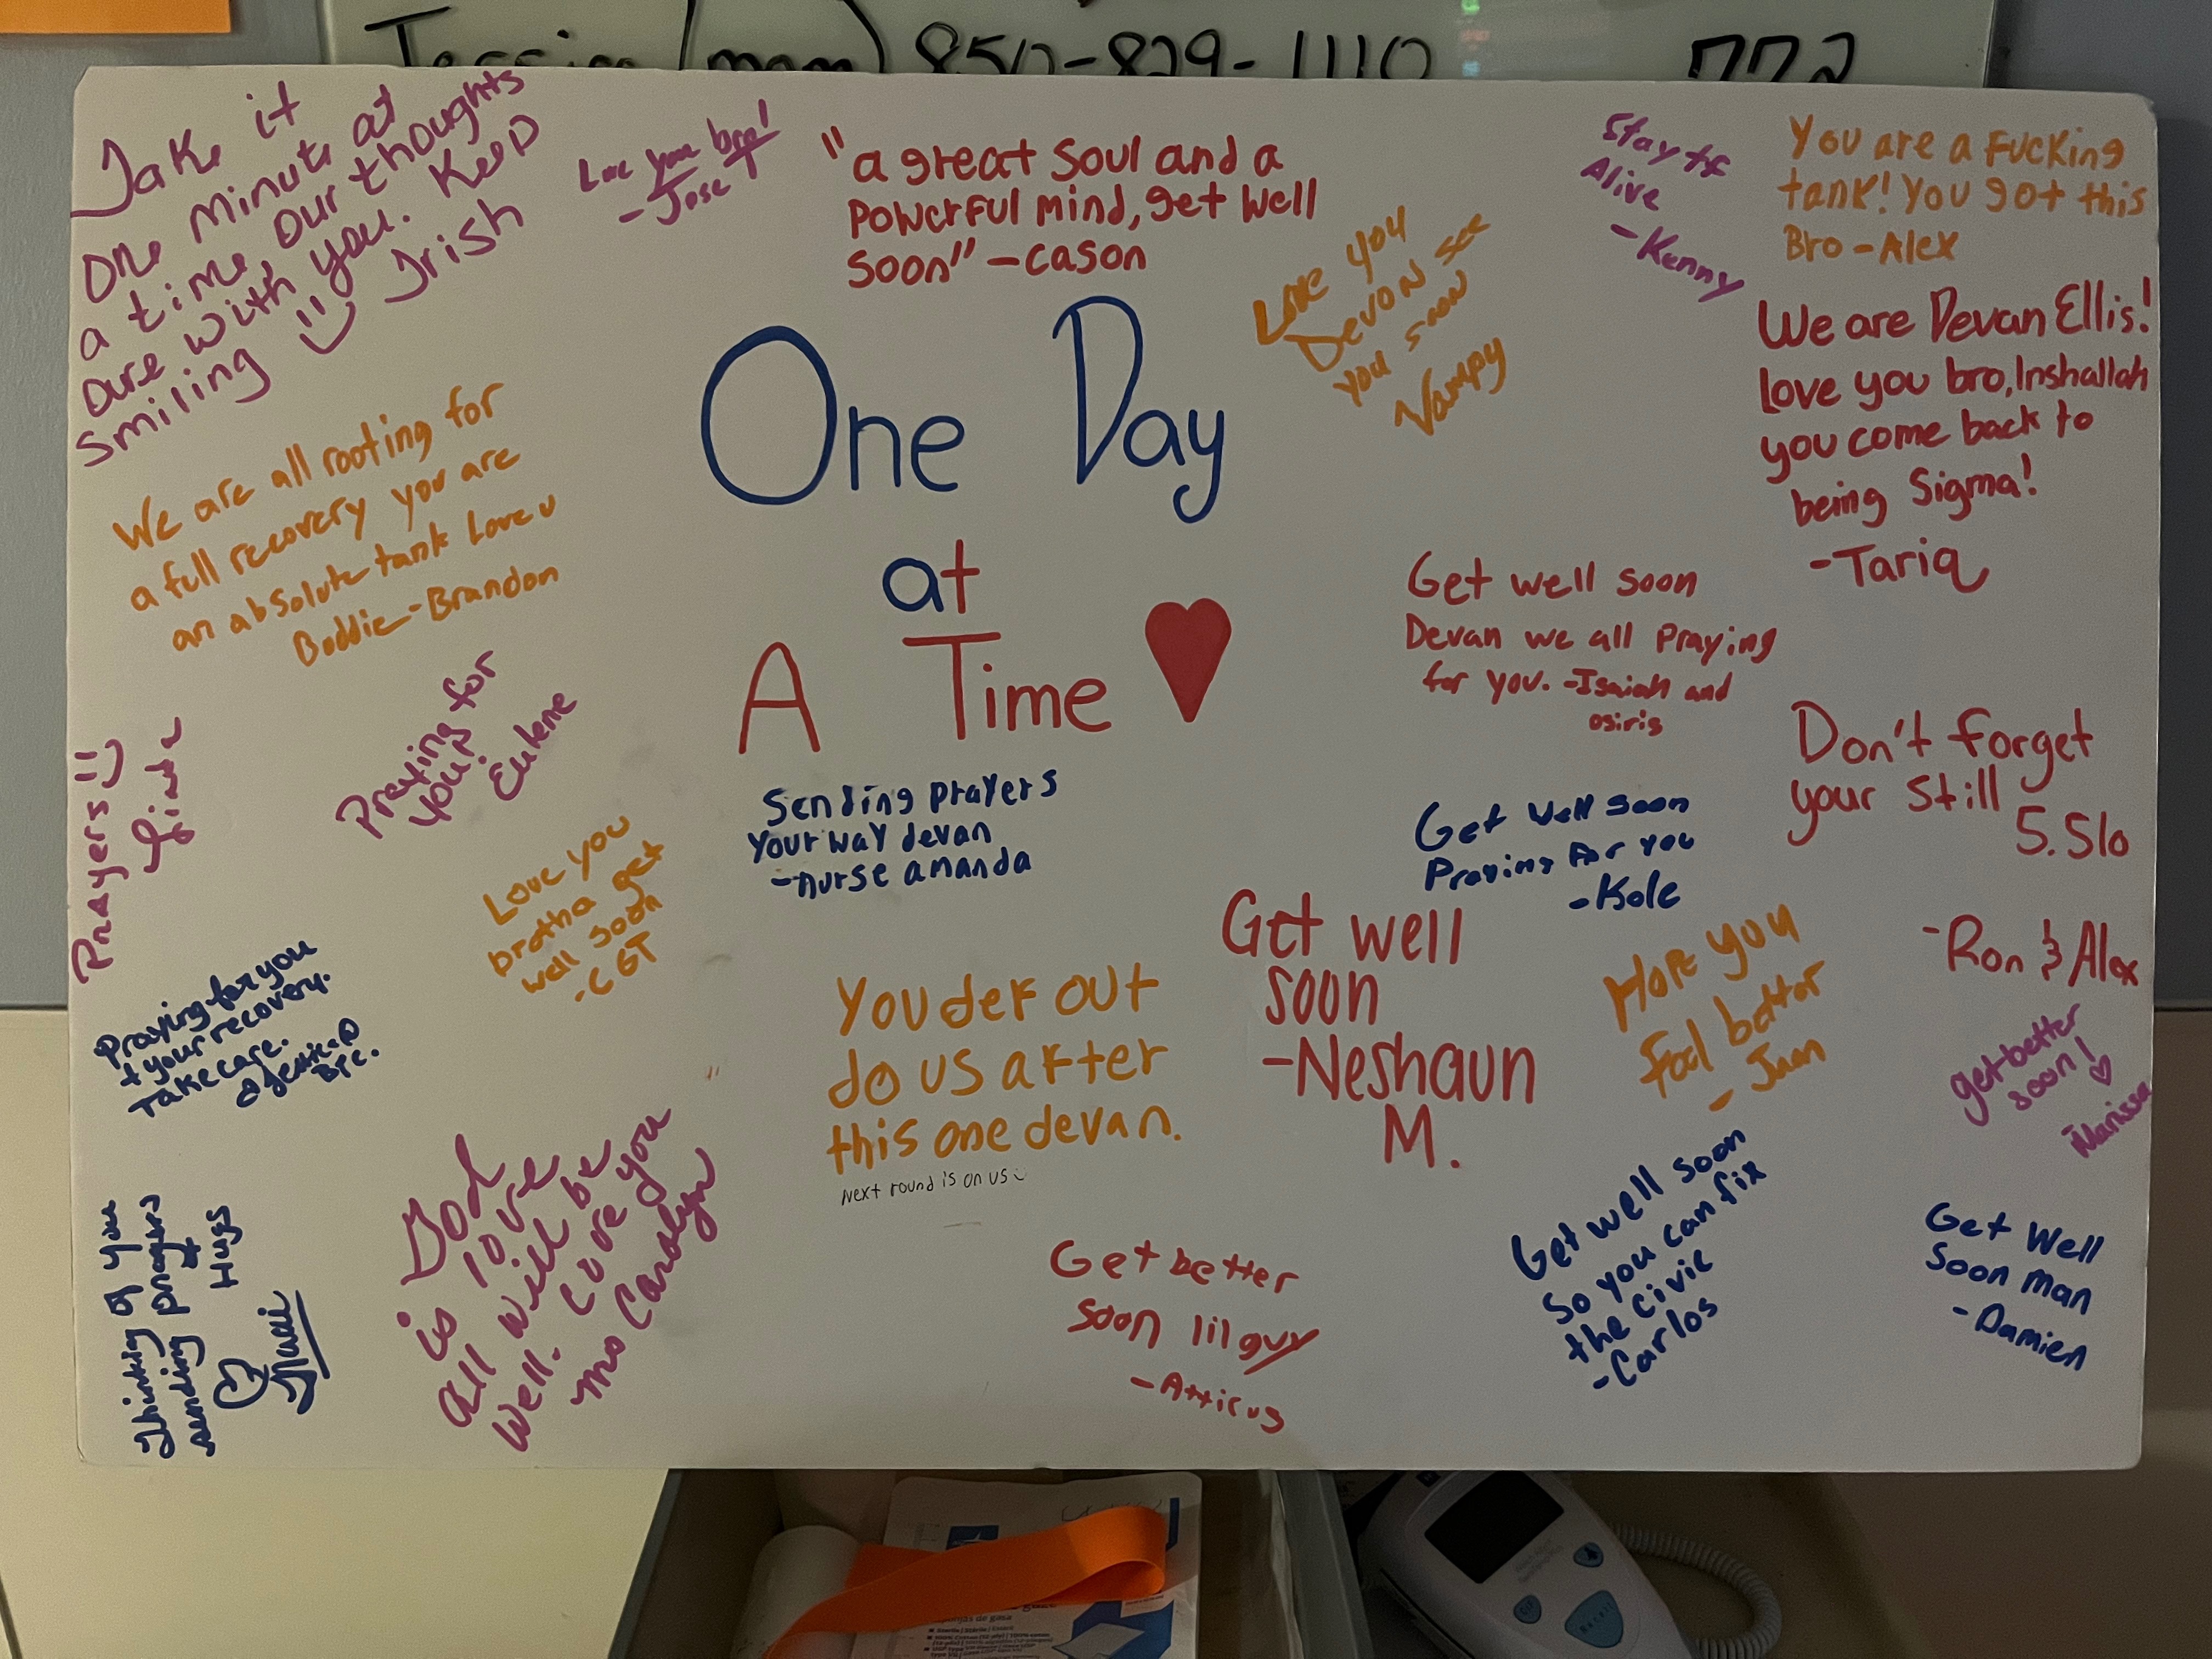 Jessica (mom) 850-829-1110
772
Take it
one minute at
a time, our thoughts
are with you. Keep
smiling Irish
Love you bro!
-Jose T
"a great soul and a
powerful mind, get well
soon" -cason
Love you
Devon see
you soon
Vampy
Stay tf
Alive
-Kenny
You are a Fucking
tank! You got this
Bro -Alex
We are Devan Ellis!
Love you bro, Inshallah
you come back to
being Sigma!
-Tariq
One Day
at
A Time
We are all rooting for
a full recovery you are
an absolute tank Love u
Boddie -Brandon
Get well soon
Devan we all Praying
for you. -Isaiah and
osiris
Praying for
you
Eulene
Prayers
Don't forget
your still
5.Slo
-Ron & Alex
Sending prayers
your way devan
-nurse amanda
Get well soon
Praying for you
-Kole
Love you
brotha get
well soon
-CGT
Get well
soon
-Neshaun
M.
Hope you
feel better
- Juan
Praying for you
+ your recovery.
Take care.
You def out
do us after
this one devan.
Next round is on us
get better
soon!
Marissa
God
is love
all will be
well. Love you
mo Carolyn
Thinking of you
sending prayers
& Hugs
Get better
soon lil guy
-Atticus
Get well soon
so you can fix
the civic
-Carlos
Get Well
Soon man
-Damien